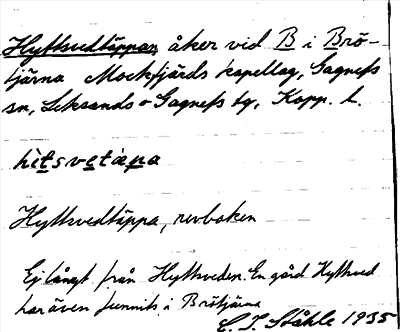 Hyttsvedtäppan, åker vid B i Brö-
tjärna Mockfjärds kapellag, Gagnefs
sn, Leksands o Gagnefs tg, Kopp. l.
hìtsvetæpa
Hyttsvedtäppa, revboken
Ej långt från Hyttsveden. En gård Hyttsved
har även funnits i Brötjärna
C. I. Ståhle 1935